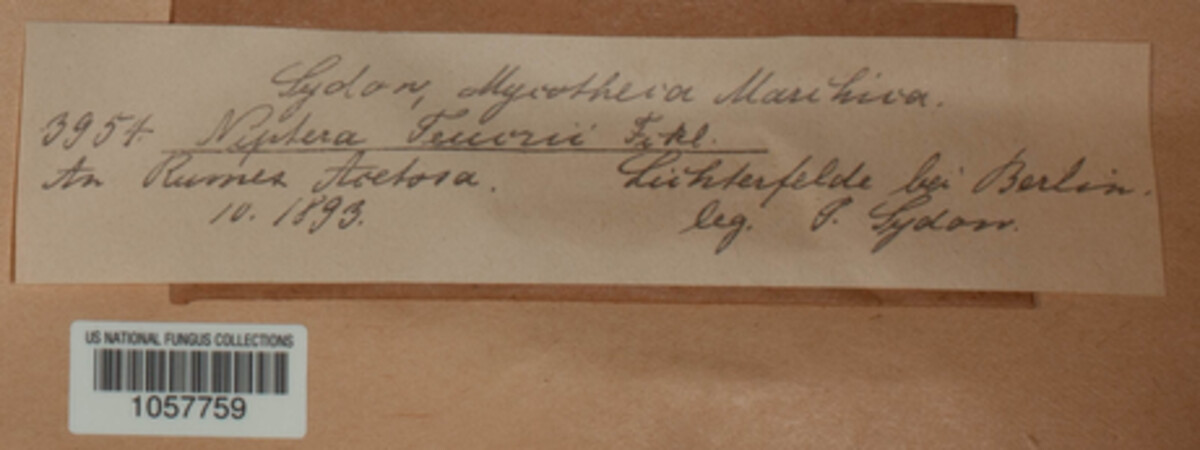 Sydow, Mycotheca Marchica.
3954. Niptera Teucrii Fckl.
An Rumex Acetosa. Lichterfelde bei Berlin.
10. 1893. leg. P. Sydow.
US NATIONAL FUNGUS COLLECTIONS
1057759